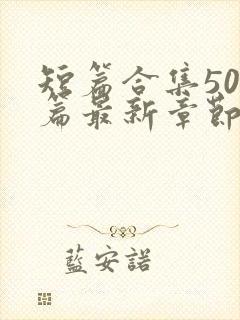 短篇合集50
篇最新章節
藍安諾